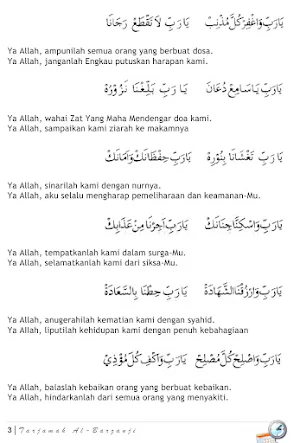 يَارَبِّ وَاغْفِرْ كُلَّ مُذْنِبْ يَارَبِّ لَا تَقْطَعْ رَجَانَا
Ya Allah, ampunilah semua orang yang berbuat dosa.
Ya Allah, janganlah Engkau putuskan harapan kami.
يَارَبِّ يَاسَامِعْ دُعَانَا يَارَبِّ بَلِّغْنَا نَزُوْرُهْ
Ya Allah, wahai Zat Yang Maha Mendengar doa kami.
Ya Allah, sampaikan kami ziarah ke makamnya
يَارَبِّ تَغْشَانَا بِنُوْرِهْ يَارَبِّ حِفْظَانَكْ وَاَمَانَكْ
Ya Allah, sinarilah kami dengan nurnya.
Ya Allah, aku selalu mengharap pemeliharaan dan keamanan-Mu.
يَارَبِّ وَاسْكِنَّا جِنَانَكْ يَارَبِّ اَجِرْنَا مِنْ عَذَابِكْ
Ya Allah, tempatkanlah kami dalam surga-Mu.
Ya Allah, selamatkanlah kami dari siksa-Mu.
يَارَبِّ وَارْزُقْنَا الشَّهَادَةْ يَارَبِّ حِطْنَا بِالسَّعَادَةْ
Ya Allah, anugerahilah kematian kami dengan syahid.
Ya Allah, liputilah kehidupan kami dengan penuh kebahagiaan
يَارَبِّ وَاصْلِحْ كُلَّ مُصْلِحْ يَارَبِّ وَاكْفِ كُلَّ مُؤْذِيْ
Ya Allah, balaslah kebaikan orang yang berbuat kebaikan.
Ya Allah, hindarkanlah dari semua orang yang menyakiti.
3 | Tarjamah Al-Barzanji